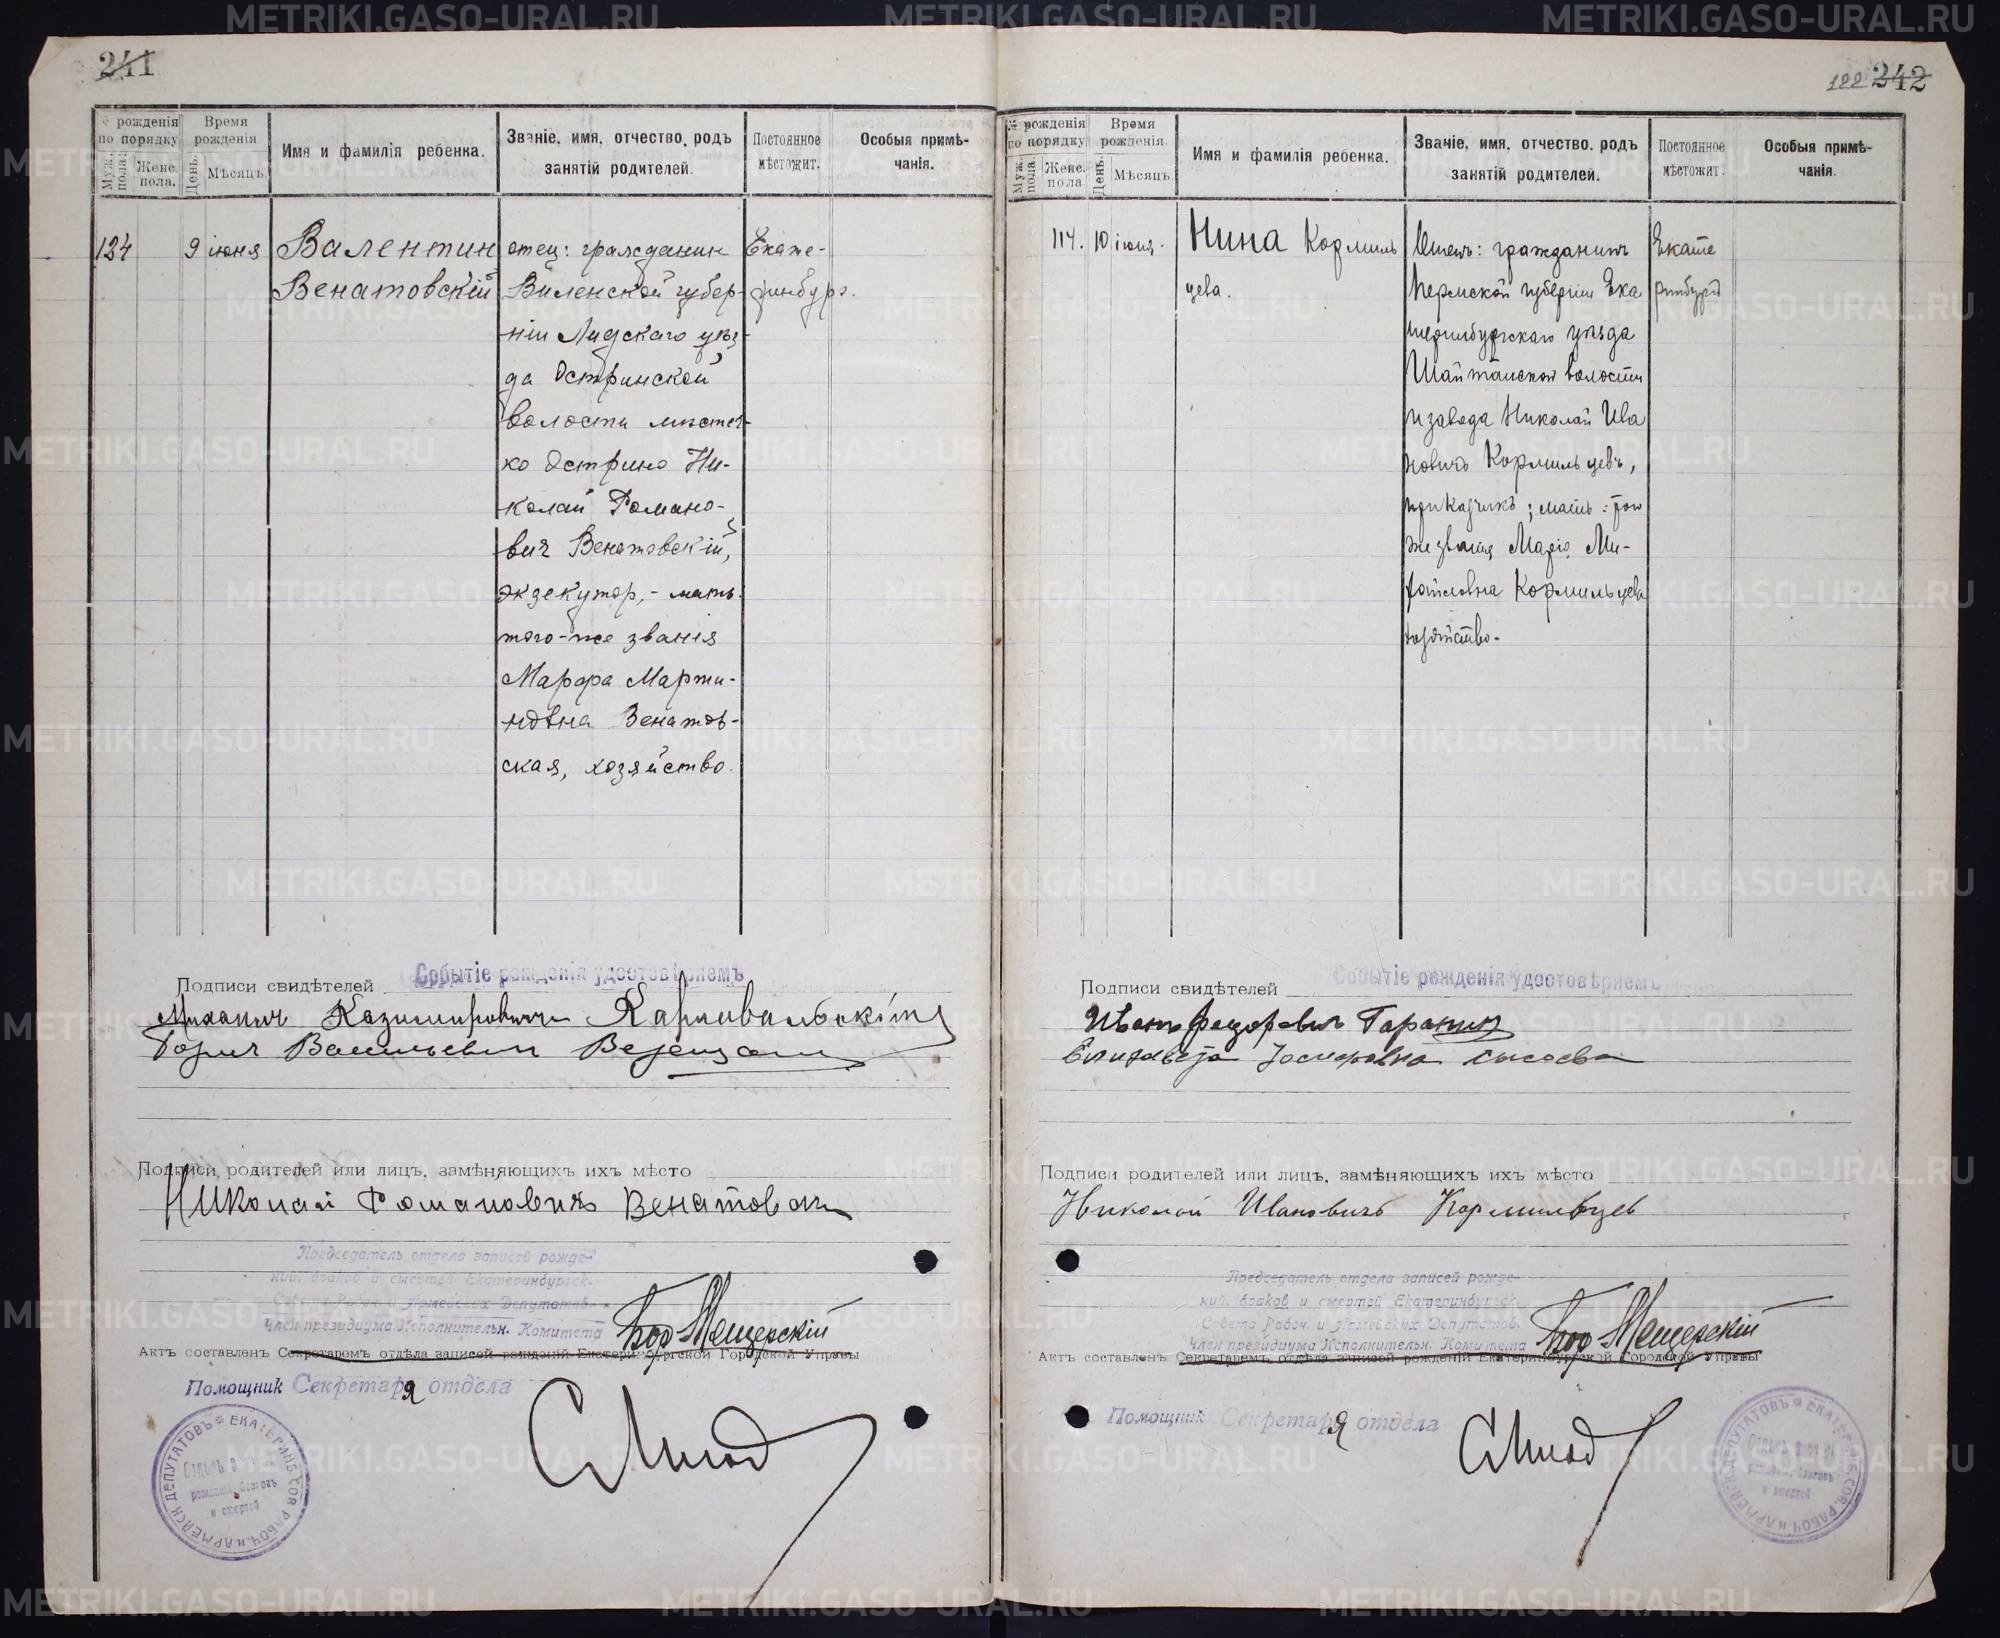 241
№ рожденія по порядку
Муж. пола.
Женс. пола.
Время рожденія
День.
Мѣсяцъ.
Имя и фамилія ребенка.
Званіе, имя, отчество, родъ
занятій родителей.
Постоянное
мѣстожит.
Особыя примѣ-
чанія.
124
9 іюня
Валентин
Венатовскій
отец: гражданин
Виленской губер-
ніи Лидскаго уѣз-
да Остринской
волости мѣстеч-
ко Острино Ни-
колай Романо-
вич Венатовскій,
экзекутор, - мать:
того-же званія
Марфа Марти-
новна Венатов-
ская, хозяйство.
Екате-
ринбург.
Подписи свидѣтелей
Событіе рожденія удостовѣряемъ
Казимировичъ
Васильевич
Подписи родителей или лицъ, замѣняющихъ ихъ мѣсто
Николай Романовичъ Венатовскій
Предсѣдатель отдела записей рожде-
ний, браков и смертей Екатеринбургск.
Совета Рабоч. и Армейских Депутатов.
Член президиума Исполнительн. Комитета
Бор Мещерскій
Актъ составленъ Секретаремъ отдѣла записей рожденій Екатеринбургской Городской Управы
Помощник Секретаря отдела
ЕКАТЕРИНБ. СОВ. РАБОЧ. И АРМЕЙСК. ДЕПУТАТОВЪ
122 242
№ рожденія по порядку
Муж. пола.
Женс. пола
Время рожденія.
День.
Мѣсяцъ.
Имя и фамилія ребенка.
Званіе, имя, отчество, родъ
занятій родителей.
Постоянное
мѣстожит.
Особыя примѣ-
чанія.
114.
10 іюня.
Нина Кормиль
цева.
Отецъ: гражданинъ
Пермской губерніи Ека
теринбургскаго уѣзда
Шайтанской волости
и завода Николай Ива
новичъ Кормильцевъ,
приказчикъ; мать: того
же званія Марія Ми-
хайловна Кормильцева
хозяйство.
Екате
ринбургъ
Подписи свидѣтелей
Событіе рожденія удостовѣряемъ
Иванъ Федоровичъ Гаранин
Елизавета Сысоева
Подписи родителей или лицъ, замѣняющихъ ихъ мѣсто
Николай Ивановичъ Кормильцев
Предсѣдатель отдела записей рожде-
ний, браков и смертей Екатеринбургск.
Совета Рабоч. и Армейских Депутатов.
Член президиума Исполнительн. Комитета
Бор Мещерскій
Актъ составленъ Секретаремъ отдѣла записей рожденій Екатеринбургской Городской Управы
Помощник Секретаря отдела
ЕКАТЕРИНБ. СОВ. РАБОЧ. И АРМЕЙСК. ДЕПУТАТОВЪ
METRIKI.GASO-URAL.RU